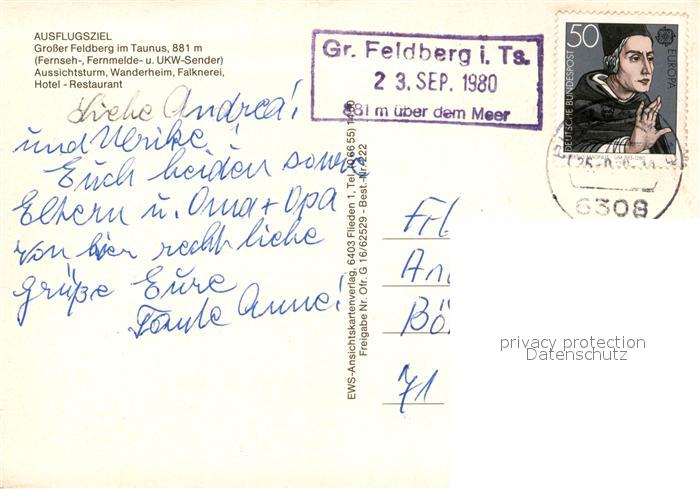 AUSFLUGSZIEL
Großer Feldberg im Taunus, 881 m
(Fernseh-, Fernmelde- u. UKW-Sender)
Aussichtsturm, Wanderheim, Falknerei,
Hotel - Restaurant
Gr. Feldberg i. Ts.
2 3. SEP. 1980
881 m über dem Meer
50
EUROPA
DEUTSCHE BUNDESPOST
6308
Liebe Andrea!
und Ulrike!
Euch beiden sowie
Eltern u. Oma + Opa
von hier recht liebe
Grüße Eure
Tante Anne!
EWS-Ansichtskartenverlag, 6403 Flieden 1, Tel. (066 55)
Freigabe Nr. Obr. G 16/62529 - Best.-Nr. 222
Frl
An
Bö
71
privacy protection
Datenschutz